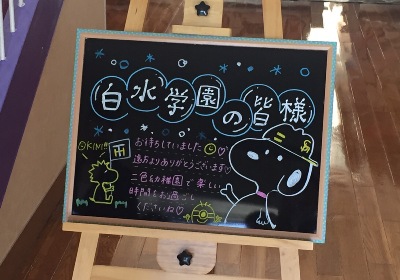 白水学園の皆様
お待ちしていました
遠方よりありがとうございます♡
二色幼稚園で楽しい
時間をお過ごし
くださいね♡